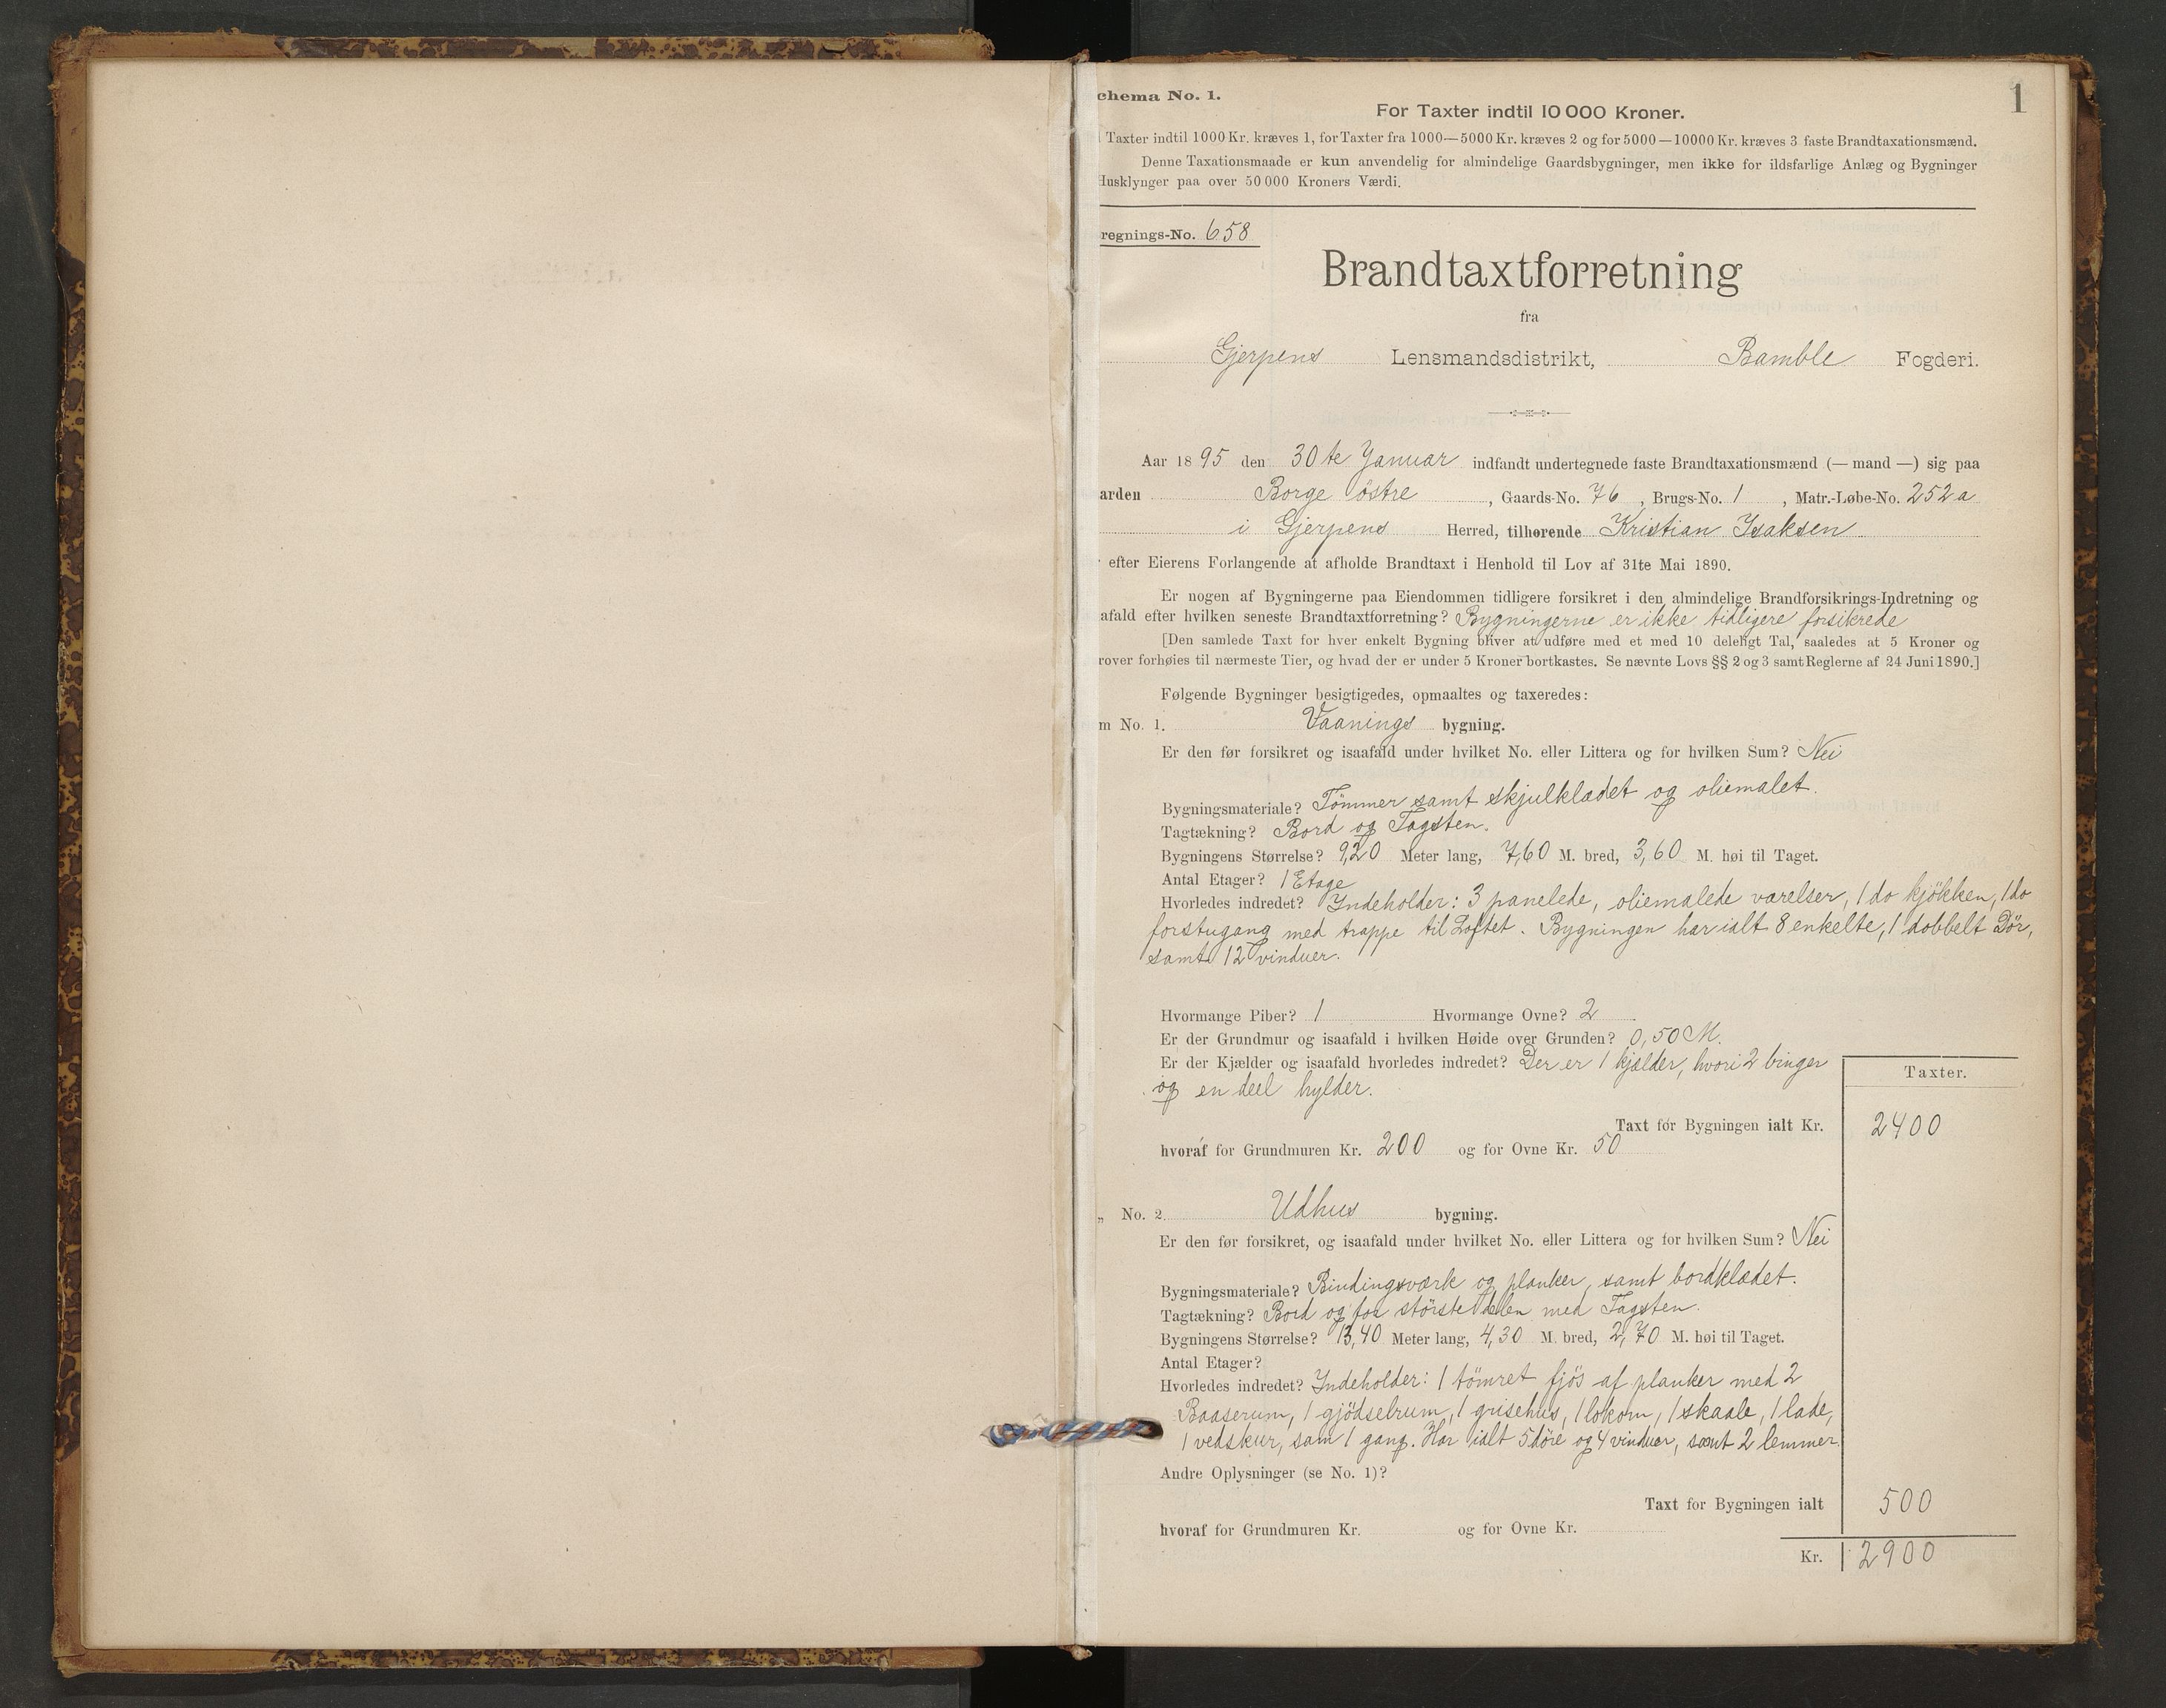 1
chema No. 1.
For Taxter indtil 10 000 Kroner.
Taxter indtil 1000 Kr. kræves 1, for Taxter fra 1000—5000 Kr. kræves 2 og for 5000—10000 Kr. kræves 3 faste Brandtaxationsmænd.
Denne Taxationsmaade er kun anvendelig for almindelige Gaardsbygninger, men ikke for ildsfarlige Anlæg og Bygninger
Husklynger paa over 50 000 Kroners Værdi.
regnings-No. 658
Brandtaxtforretning
fra
Gjerpens Lensmandsdistrikt, Bamble Fogderi.
Aar 1895 den 30te Januar indfandt undertegnede faste Brandtaxationsmænd (— mand —) sig paa
arden Borge östre, Gaards-No. 76, Brugs-No. 1, Matr.-Løbe-No. 252a
i Gjerpens Herred, tilhørende Kristian Isaksen
efter Eierens Forlangende at afholde Brandtaxt i Henhold til Lov af 31te Mai 1890.
Er nogen af Bygningerne paa Eiendommen tidligere forsikret i den almindelige Brandforsikrings-Indretning og
afald efter hvilken seneste Brandtaxtforretning? Bygningerne er ikke tidligere forsikrede
[Den samlede Taxt for hver enkelt Bygning bliver at udføre med et med 10 deleligt Tal, saaledes at 5 Kroner og
rover forhøies til nærmeste Tier, og hvad der er under 5 Kroner bortkastes. Se nævnte Lovs §§ 2 og 3 samt Reglerne af 24 Juni 1890.]
Følgende Bygninger besigtigedes, opmaaltes og taxeredes:
m No. 1. Vaanings bygning.
Er den før forsikret og isaafald under hvilket No. eller Littera og for hvilken Sum? Nei
Bygningsmateriale? Tömmer samt skjulklædet og oliemalet.
Tagtækning? Bord og Tagsten.
Bygningens Størrelse? 9,20 Meter lang, 7,60 M. bred, 3,60 M. høi til Taget.
Antal Etager? 1 Etage
Hvorledes indredet? Indeholder: 3 panelede, oliemalede værelser, 1 do kjökken, 1 do
forstugang med trappe til Loftet. Bygningen har ialt 8 enkelte, 1 dobbelt Dör,
samt 12 vinduer.
Hvormange Piber? 1 Hvormange Ovne? 2
Er der Grundmur og isaafald i hvilken Høide over Grunden? 0,50 M.
Er der Kjælder og isaafald hvorledes indredet? Der er 1 kjælder, hvori 2 binger
og en deel hylder.
Taxter.
Taxt for Bygningen ialt Kr. 2400
hvoraf for Grundmuren Kr. 200 og for Ovne Kr. 50
„ No. 2. Udhus bygning.
Er den før forsikret, og isaafald under hvilket No. eller Littera og for hvilken Sum? Nei
Bygningsmateriale? Bindingsværk og planker, samt bordklædet.
Tagtækning? Bord og for störstedelen med Tagsten.
Bygningens Størrelse? 13,40 Meter lang, 4,30 M. bred, 2,70 M. høi til Taget.
Antal Etager?
Hvorledes indredet? Indeholder: 1 tömret fjös af planker med 2
Baaserum, 1 gjödselrum, 1 grisehus, 1 lokom, 1 skaale, 1 lade,
1 vedskur, sam 1 gang. Har ialt 5 döre og 4 vinduer, samt 2 lemmer.
Andre Oplysninger (se No. 1)?
Taxt for Bygningen ialt 500
hvoraf for Grundmuren Kr. og for Ovne Kr.
Kr. 2900